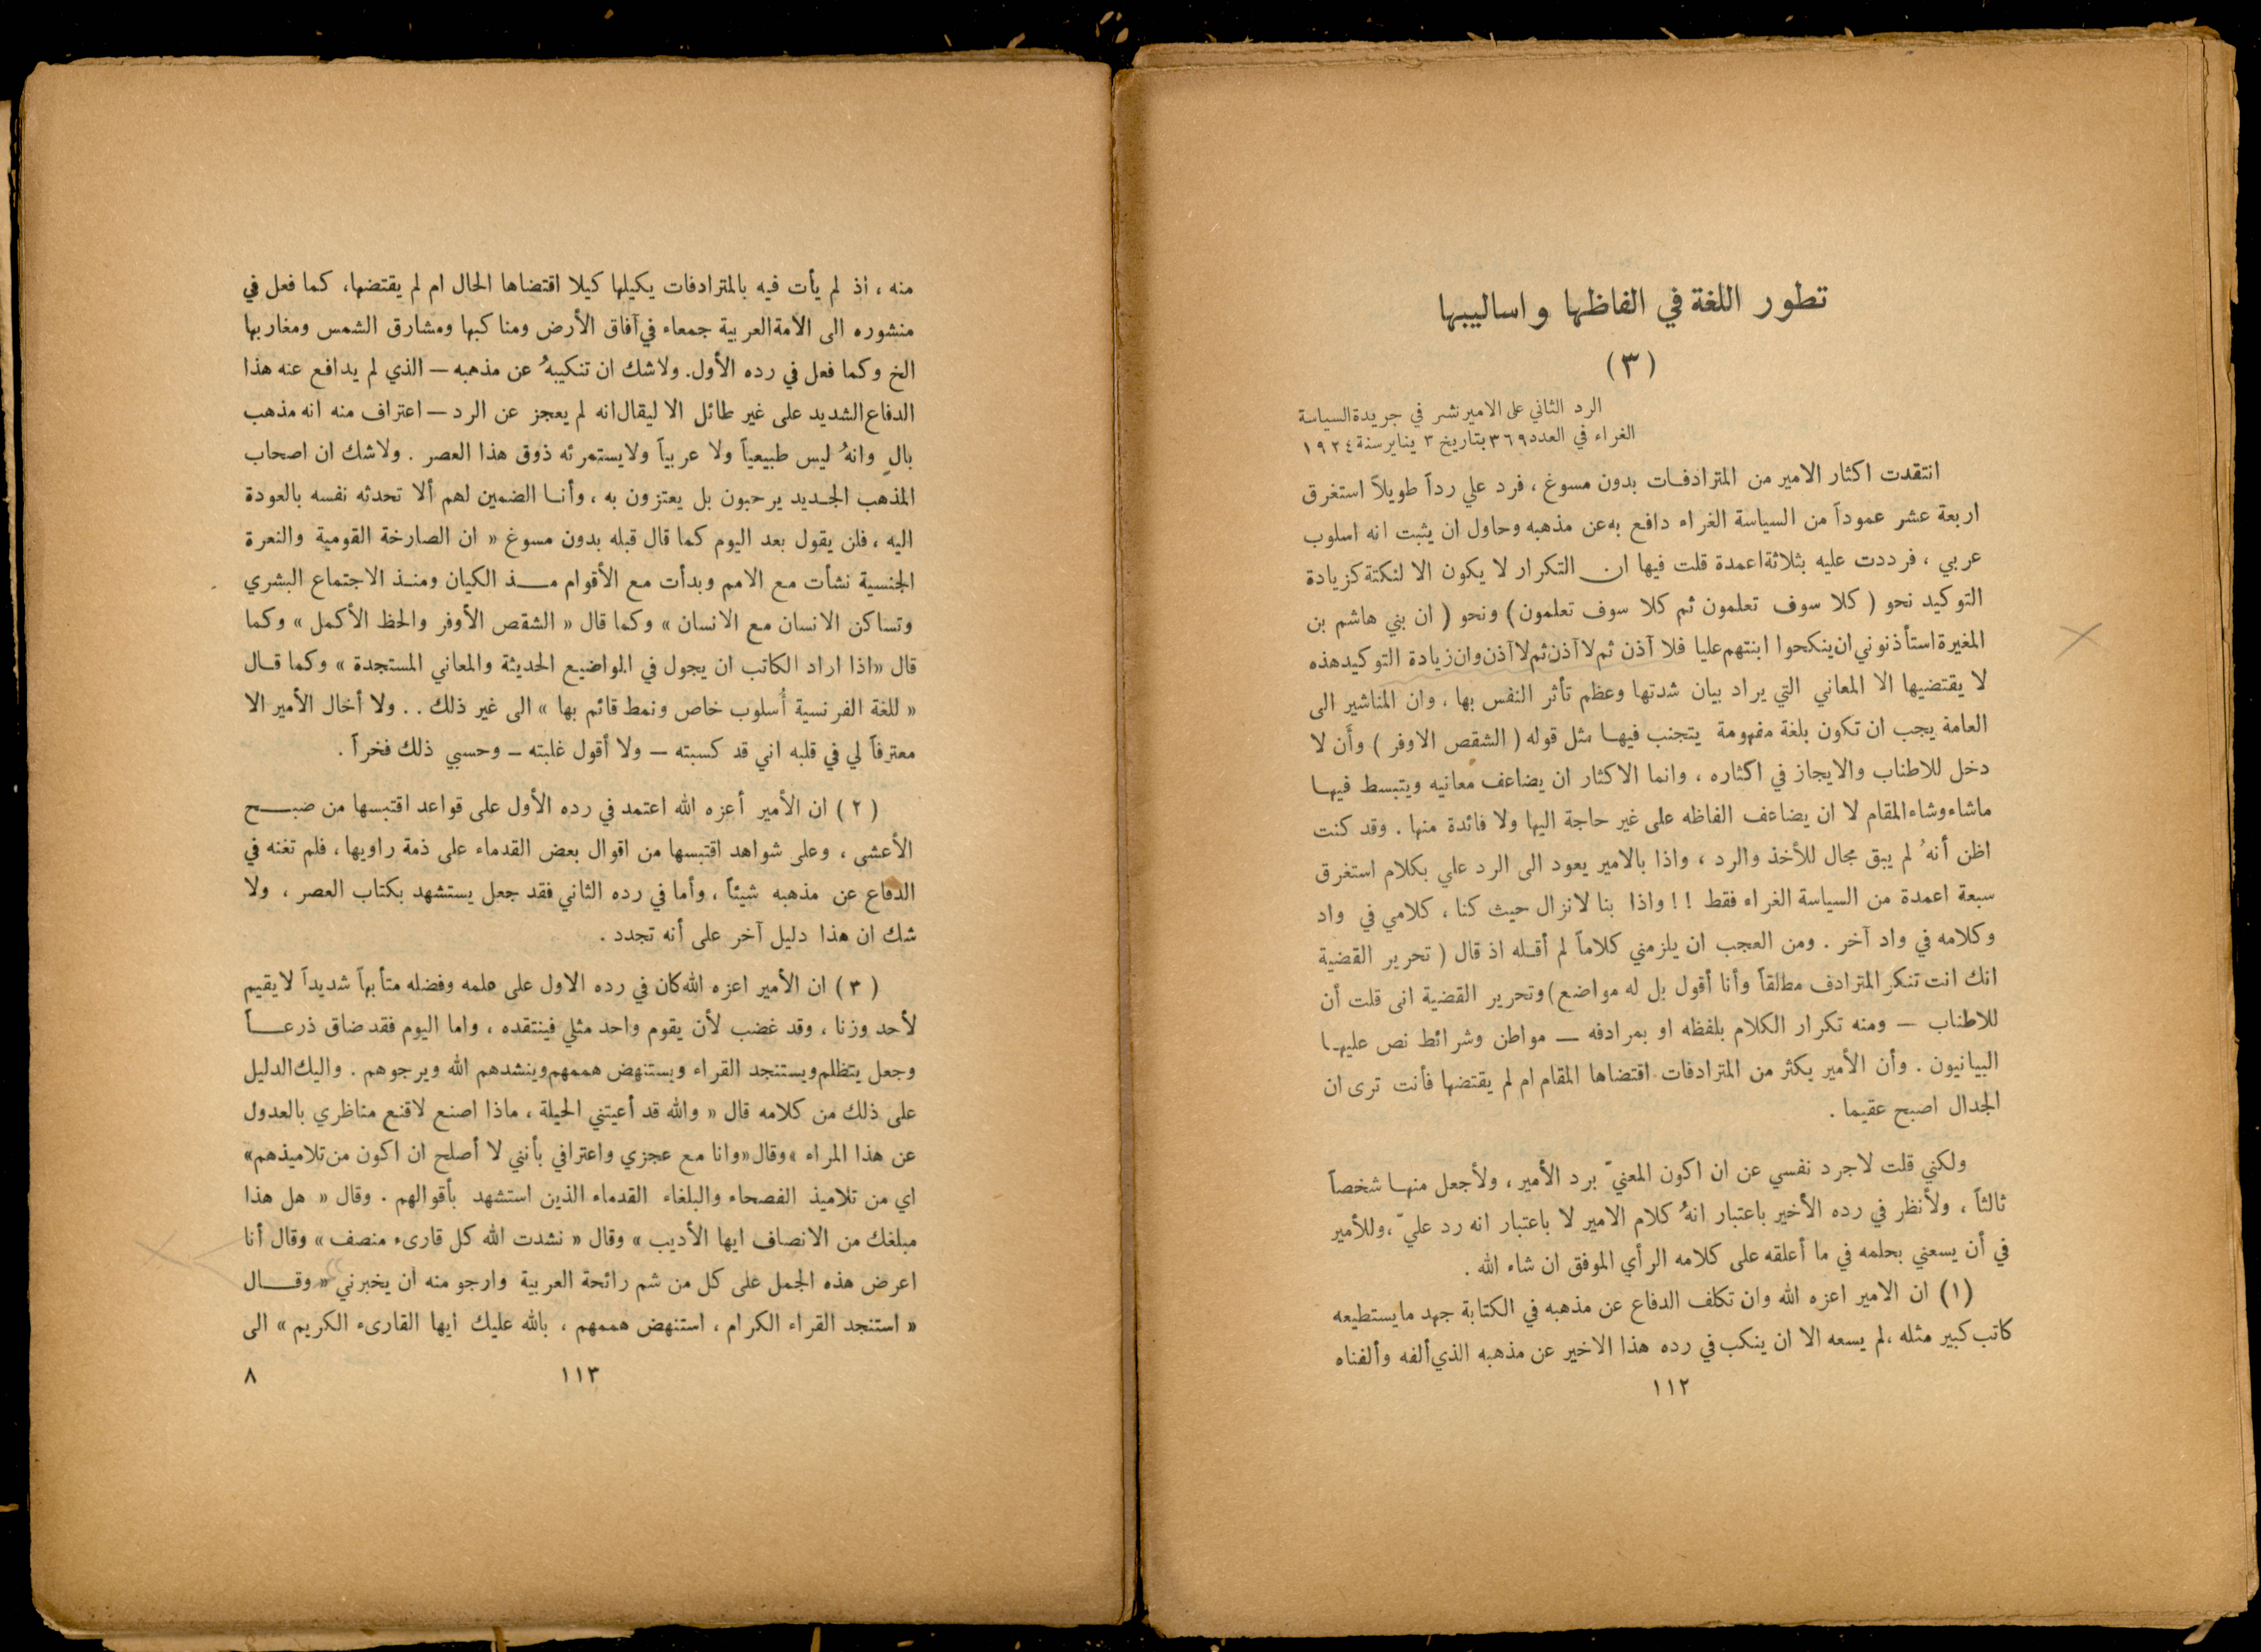 تطور اللغة في الفاظها واساليبها
(٣)
الرد الثاني على الامير نشر في جريدة السياسة
الغراء في العدد ٣٦٩ بتاريخ ٣ يناير سنة ١٩٢٤
انتقدت اكثار الامير من المترادفات بدون مسوغ ، فرد علي رداً طويلاً استغرق
اربعة عشر عموداً من السياسة الغراء دافع به عن مذهبه وحاول ان يثبت انه اسلوب
عربي ، فرددت عليه بثلاثة اعمدة قلت فيها ان التكرار لا يكون الا لنكتة كزيادة
التوكيد نحو ( كلا سوف تعلمون ثم كلا سوف تعلمون) ونحو ( ان بني هاشم بن
المغيرة استأذنوني ان ينكحوا ابنتهم عليا فلا آذن ثم لا آذن ثم لا آذن وان زيادة التوكيد هذه
لا يقتضيها الا المعاني التي يراد بيان شدتها وعظم تأثر النفس بها ، وان المناشير الى
العامة يجب ان تكون بلغة مفهومة يتجنب فيها مثل قوله ( الشقص الاوفر ) وأَن لا
دخل للاطناب والايجاز في اكثاره ، وانما الاكثار ان يضاعف معانيه ويتبسط فيها
ماشاء وشاء المقام لا ان يضاعف الفاظه على غير حاجة اليها ولا فائدة منها . وقد كنت
اظن أنهُ لم يبق مجال للأخذ والرد ، واذا بالامير يعود الى الرد علي بكلام استغرق
سبعة اعمدة من السياسة الغراء فقط !! واذا بنا لانزال حيث كنا ، كلامي في واد
وكلامه في واد آخر . ومن العجب ان يلزمني كلاماً لم أقله اذ قال ( تحرير القضية
انك انت تنكر المترادف مطلقاً وأنا أقول بل له مواضع) وتحرير القضية انى قلت أن
للاطناب — ومنه تكرار الكلام بلفظه او بمرادفه — مواطن وشرائط نص عليها
البيانيون . وأن الأمير يكثر من المترادفات اقتضاها المقام ام لم يقتضها فأنت ترى ان
الجدال اصبح عقيما .
ولكني قلت لاجرد نفسي عن ان اكون المعنيّ برد الأمير ، ولأجعل منها شخصاً
ثالثاً ، ولأنظر في رده الأخير باعتبار انهُ كلام الامير لا باعتبار انه رد عليّ ، وللأمير
في أن يسعني بحلمه في ما أعلقه على كلامه الرأي الموفق ان شاء الله .
(١) ان الامير اعزه الله وان تكلف الدفاع عن مذهبه في الكتابة جهد مايستطيعه
كاتب كبير مثله ، لم يسعه الا ان ينكب في رده هذا الاخير عن مذهبه الذي ألفه وألفناه
١١٢
منه ، اذ لم يأت فيه بالمترادفات يكيلها كيلا اقتضاها الحال ام لم يقتضها، كما فعل في
منشوره الى الأمة العربية جمعاء في آفاق الأرض ومناكبها ومشارق الشمس ومغاربها
الخ وكما فعل في رده الأول. ولاشك ان تنكيبهُ عن مذهبه — الذي لم يدافع عنه هذا
الدفاع الشديد على غير طائل الا ليقال انه لم يعجز عن الرد — اعتراف منه انه مذهب
بالٍ وانهُ ليس طبيعياً ولا عربياً ولايستمرئه ذوق هذا العصر . ولاشك ان اصحاب
المذهب الجديد يرحبون بل يعتزون به ، وأنا الضمين لهم ألا تحدثه نفسه بالعودة
اليه ، فلن يقول بعد اليوم كما قال قبله بدون مسوغ « ان الصارخة القومية والنعرة
الجنسية نشأت مع الامم وبدأت مع الأقوام مـذ الكيان ومنذ الاجتماع البشري
وتساكن الانسان مع الانسان » وكما قال « الشقص الأوفر والحظ الأكمل » وكما
قال «اذا اراد الكاتب ان يجول في المواضيع الحديثة والمعاني المستجدة » وكما قال
« للغة الفرنسية أُسلوب خاص ونمط قائم بها » الى غير ذلك . . ولا أخال الأمير الا
معترفاً لي في قلبه اني قد كسبته — ولا أقول غلبته — وحسبي ذلك فخراً .
( ٢ ) ان الأمير أعزه الله اعتمد في رده الأول على قواعد اقتبسها من صبح
الأعشى ، وعلى شواهد اقتبسها من اقوال بعض القدماء على ذمة راويها ، فلم تغنه في
الدفاع عن مذهبه شيئاً ، وأما في رده الثاني فقد جعل يستشهد بكتاب العصر ، ولا
شك ان هذا دليل آخر على أنه تجدد .
( ٣ ) ان الأمير اعزه الله كان في رده الاول على علمه وفضله متأبهاً شديداً لايقيم
لأحد وزنا ، وقد غضب لأن يقوم واحد مثلي فينتقده ، واما اليوم فقد ضاق ذرعاً
وجعل يتظلم ويستنجد القراء ويستنهض هممهم وينشدهم الله ويرجوهم . واليك الدليل
على ذلك من كلامه قال « والله قد أعيتني الحيلة ، ماذا اصنع لاقنع مناظري بالعدول
عن هذا المراء » وقال «وانا مع عجزي واعترافي بأنني لا أصلح ان اكون من تلاميذهم»
اي من تلاميذ الفصحاء والبلغاء القدماء الذين استشهد بأقوالهم . وقال « هل هذا
مبلغك من الانصاف ايها الأديب » وقال « نشدت الله كل قارىء منصف » وقال أنا
اعرض هذه الجمل على كل من شم رائحة العربية وارجو منه ان يخبرني « وقال
« استنجد القراء الكرام ، استنهض هممهم ، بالله عليك ايها القارىء الكريم » الى
١١٣
٨